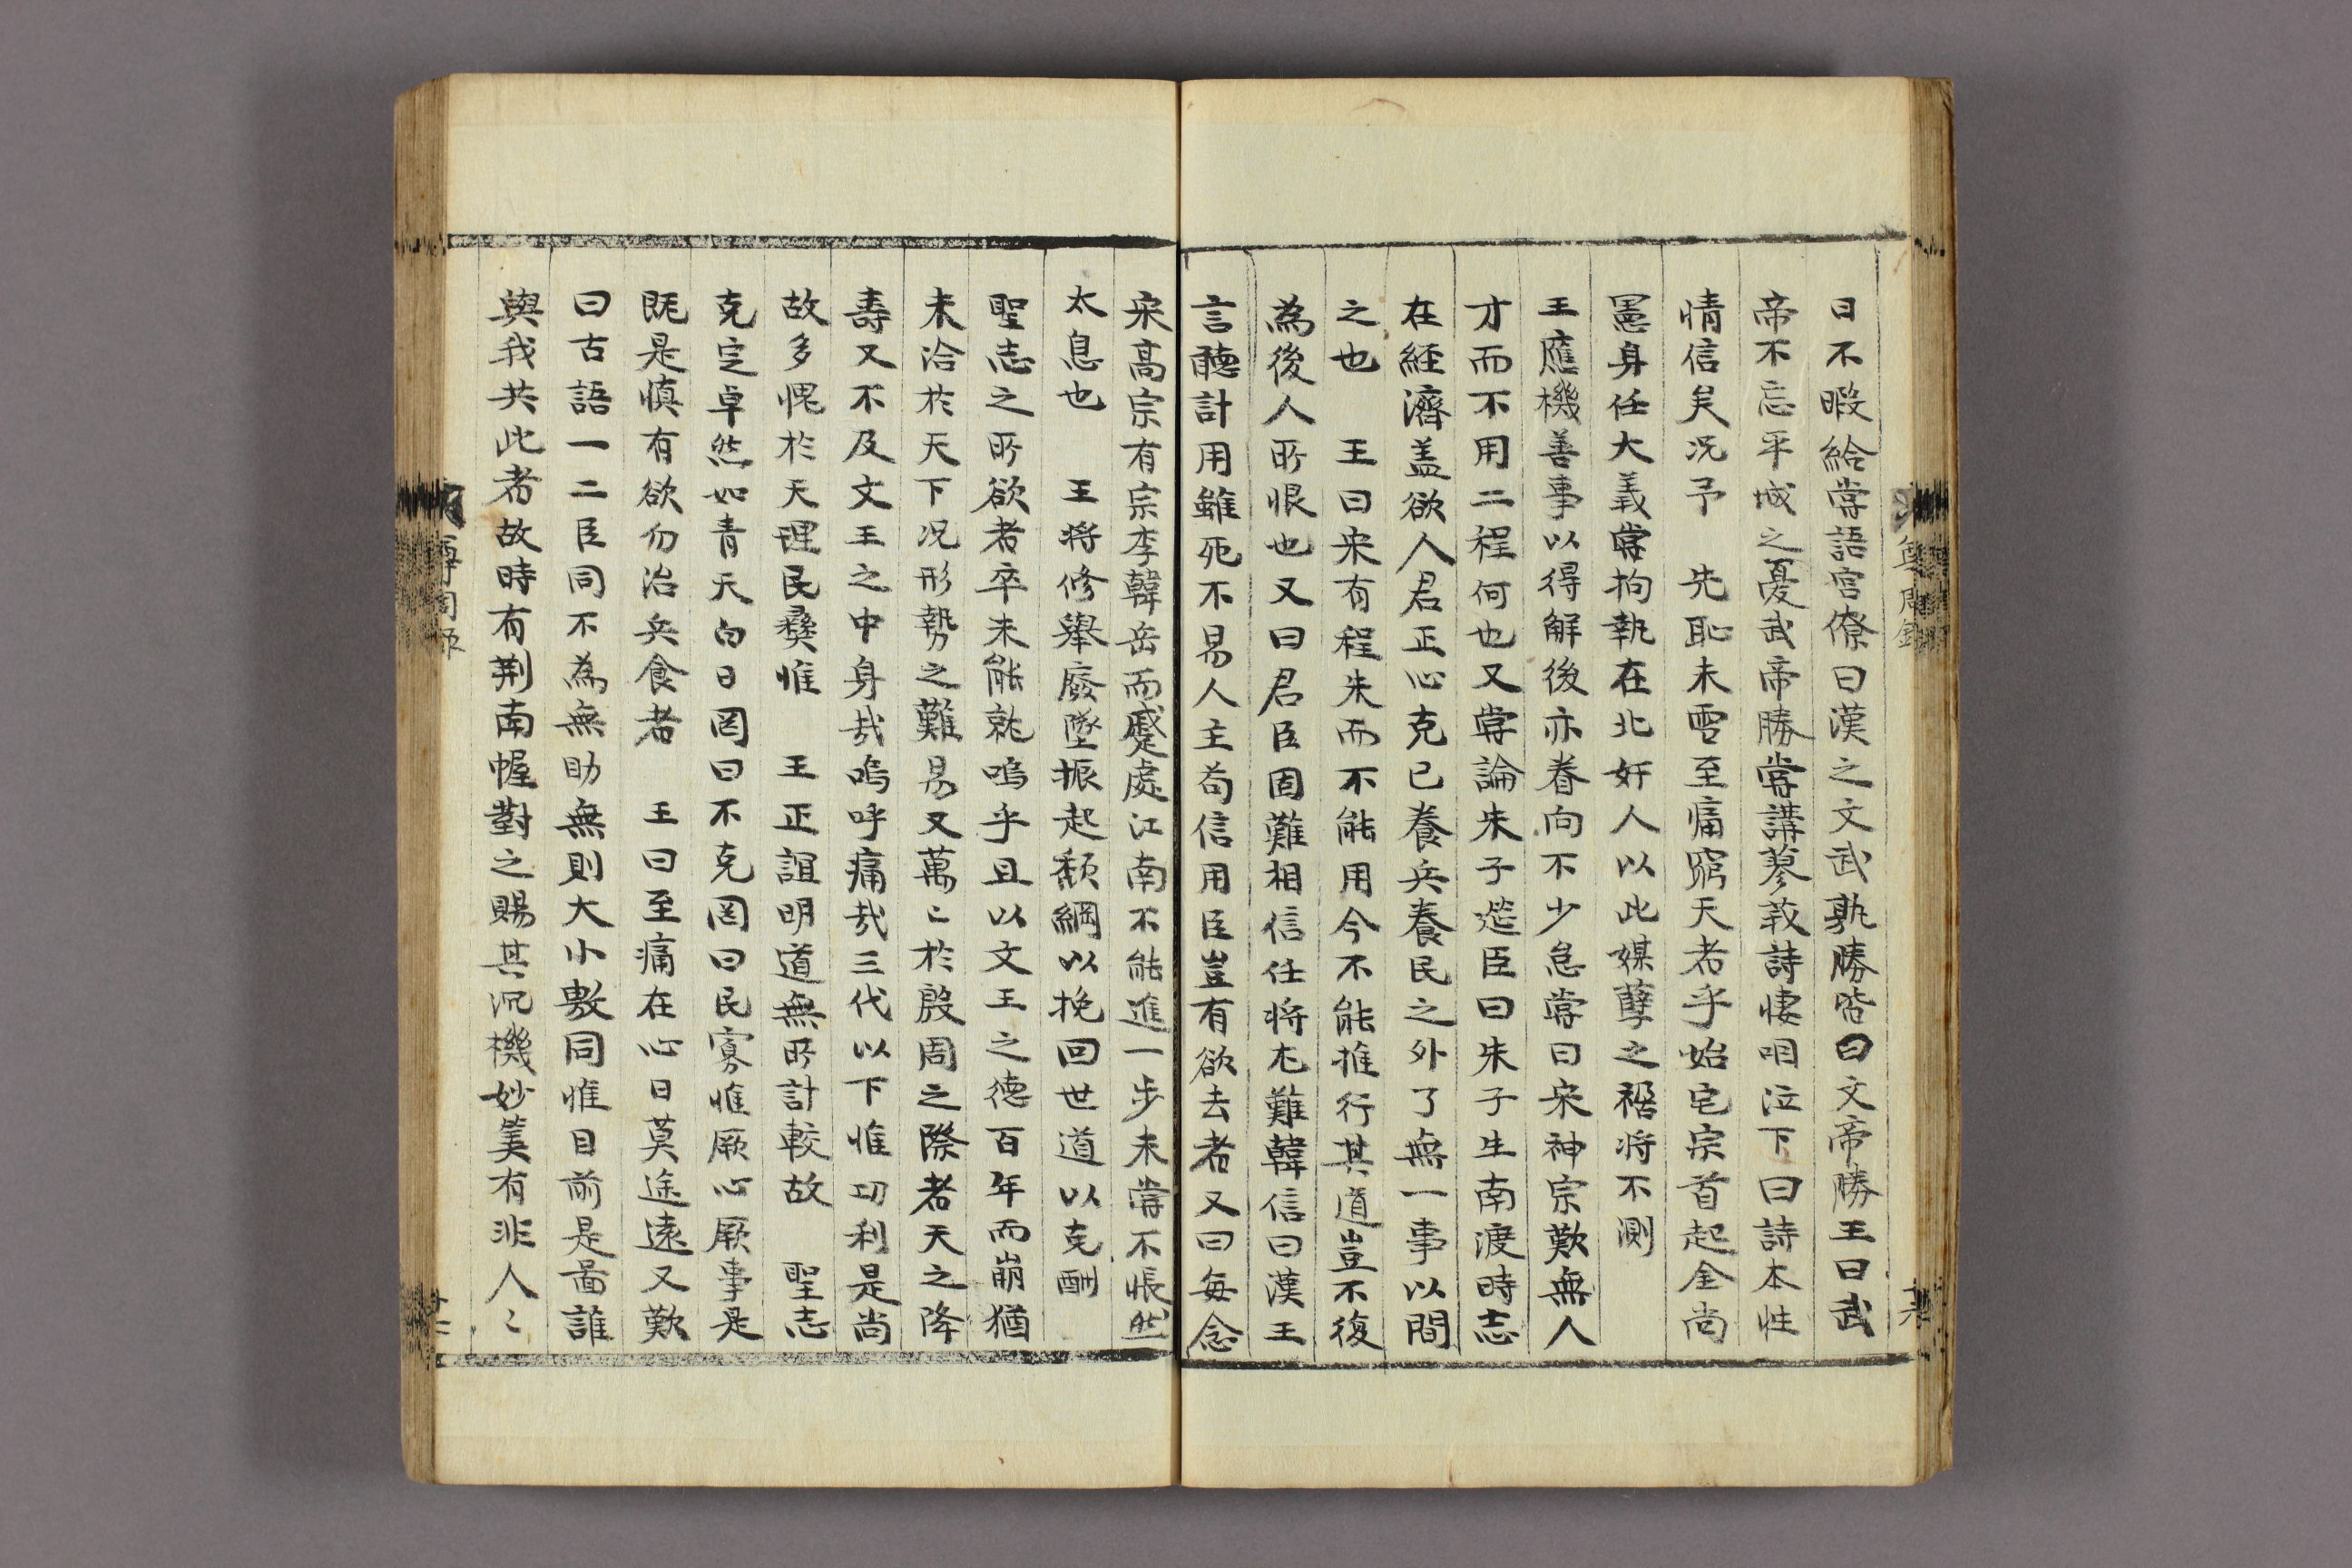 日不暇給嘗語宮僚曰漢之文武孰勝皆曰文帝勝王曰武
帝不忘平城之憂武帝勝嘗講蓼莪詩悽咽泣下曰詩本性
情信矣况予　先恥未雪至痛窮天者乎始宅宗首起金尚
憲身任大義嘗拘執在北奸人以此媒孽之禍將不測
王應機善事以得解後亦眷向不少怠嘗曰宋神宗歎無人
才而不用二程何也又嘗論朱子筵臣曰朱子生南渡時志
在経濟盖欲人君正心克己養兵養民之外了無一事以間
之也　王曰宋有程朱而不能用今不能推行其道豈不復
為後人所恨也又曰君臣固難相信任將尤難韓信曰漢王
言聽計用雖死不易人主苟信用臣豈有欲去者又曰每念
宋高宗有宗李韓岳而蹙處江南不能進一步未嘗不悵然
太息也　王將修舉廢墜振起頹綱以挽回世道以克酬
聖志之所欲者卒未能就嗚乎且以文王之德百年而崩猶
未洽於天下况形勢之難易又萬〻於殷周之際者天之降
壽又不及文王之中身哉嗚呼痛哉三代以下惟功利是尚
故多愧於天理民彜惟　王正誼明道無所計較故　聖志
克定卓然如青天白日罔曰不克罔曰民寡惟厥心厥事是
旣是愼有欲勿治兵食者　王曰至痛在心日莫途遠又歎
曰古語一二臣同不為無助無則大小敷同惟目前是啚誰
與我共此者故時有荆南幄對之賜其沉機妙筭有非人〻